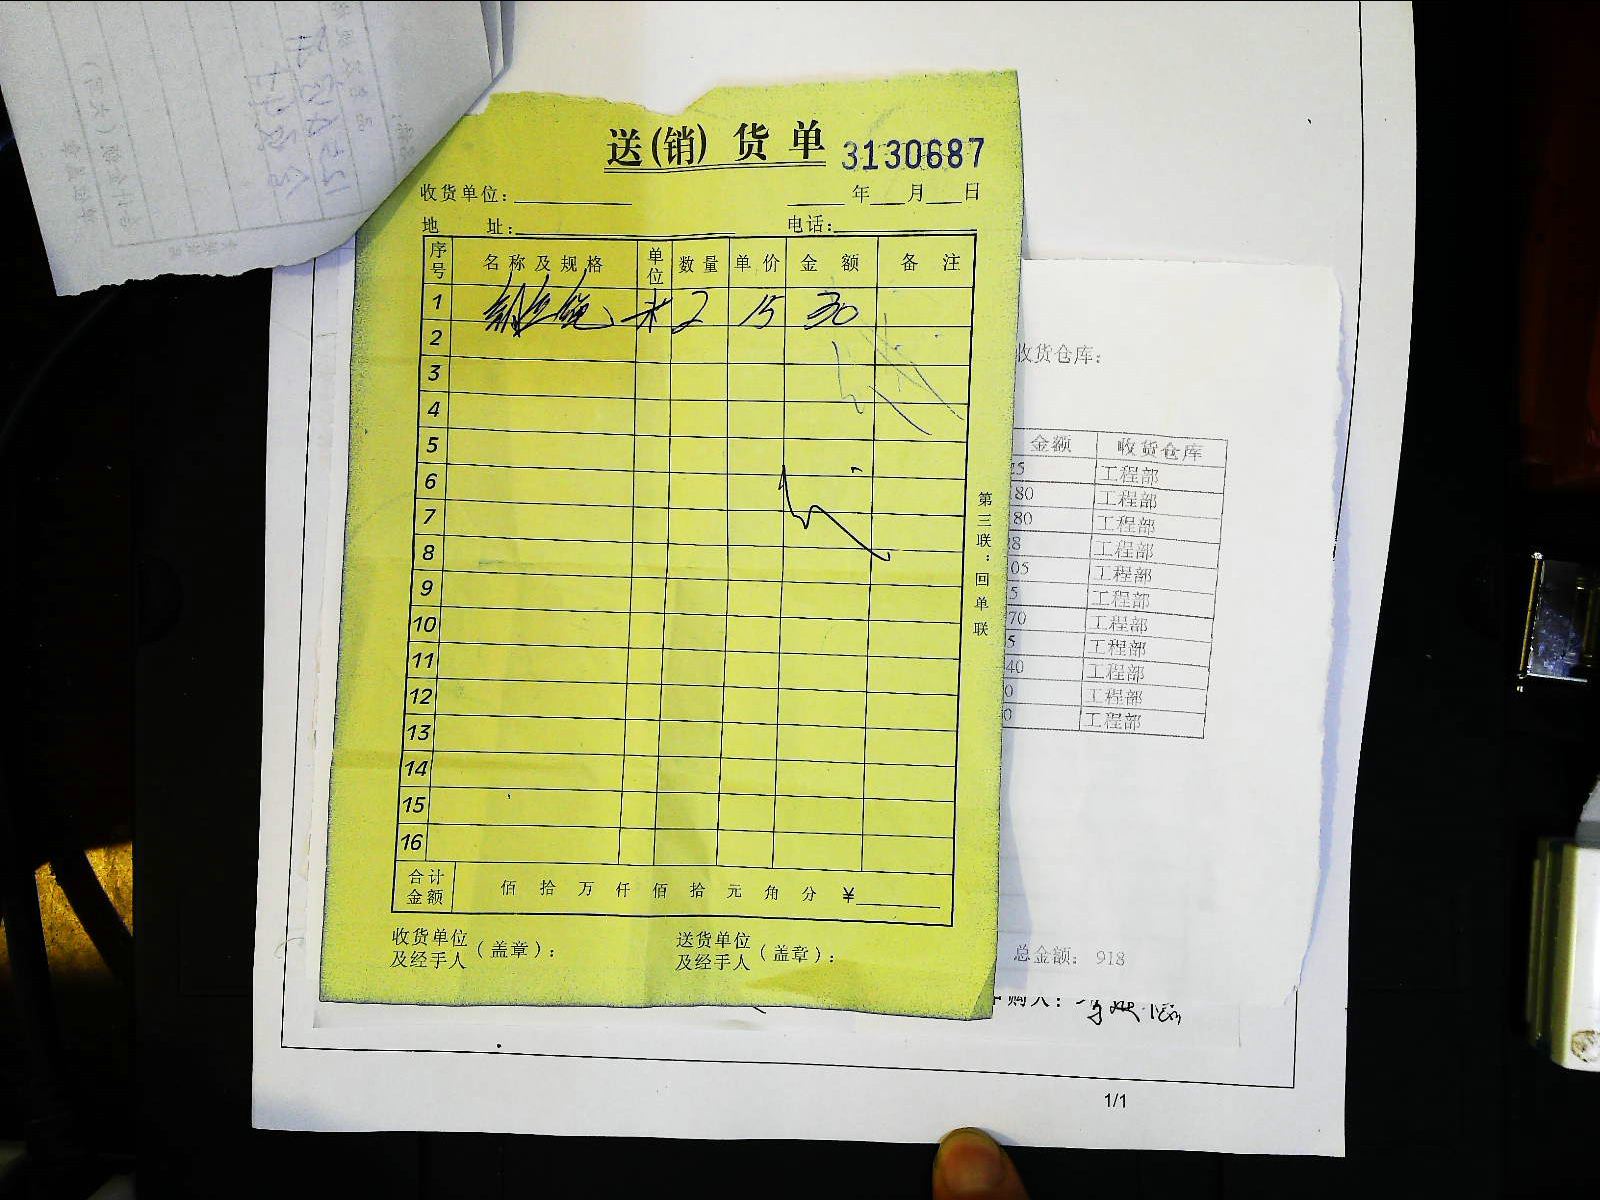 送(销)货单 3130687
收货单位: 年 月 日
地 址: 电话:
序号 名称及规格 单位 数量 单价 金额 备注
1 钢丝绳 米 2 15 30
2
3
4
5
6
7
8
9
10
11
12
13
14
15
16
合计金额 佰 拾 万 仟 佰 拾 元 角 分 ¥
收货单位及经手人(盖章): 送货单位及经手人(盖章):
第三联:回单联
收货仓库:
金额 收货仓库
工程部
工程部
工程部
工程部
工程部
工程部
工程部
工程部
工程部
工程部
工程部
总金额: 918
购人:
1/1